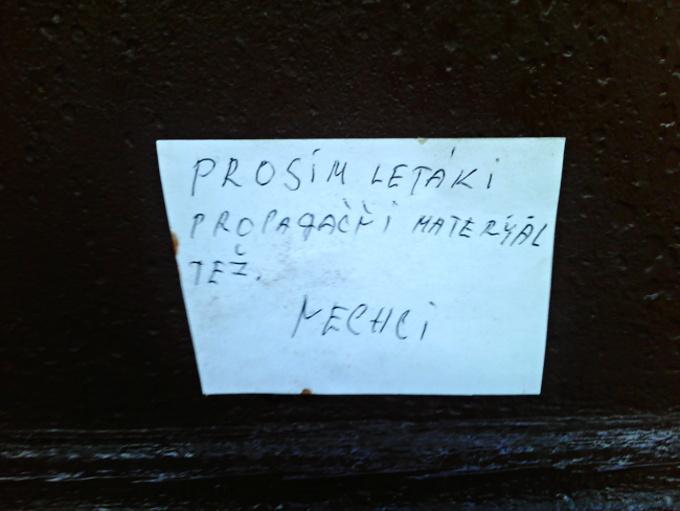 PROSÍM LETÁKI
PROPAGAČŇÍ MATERÝÁL
TEŽ.
NECHCI